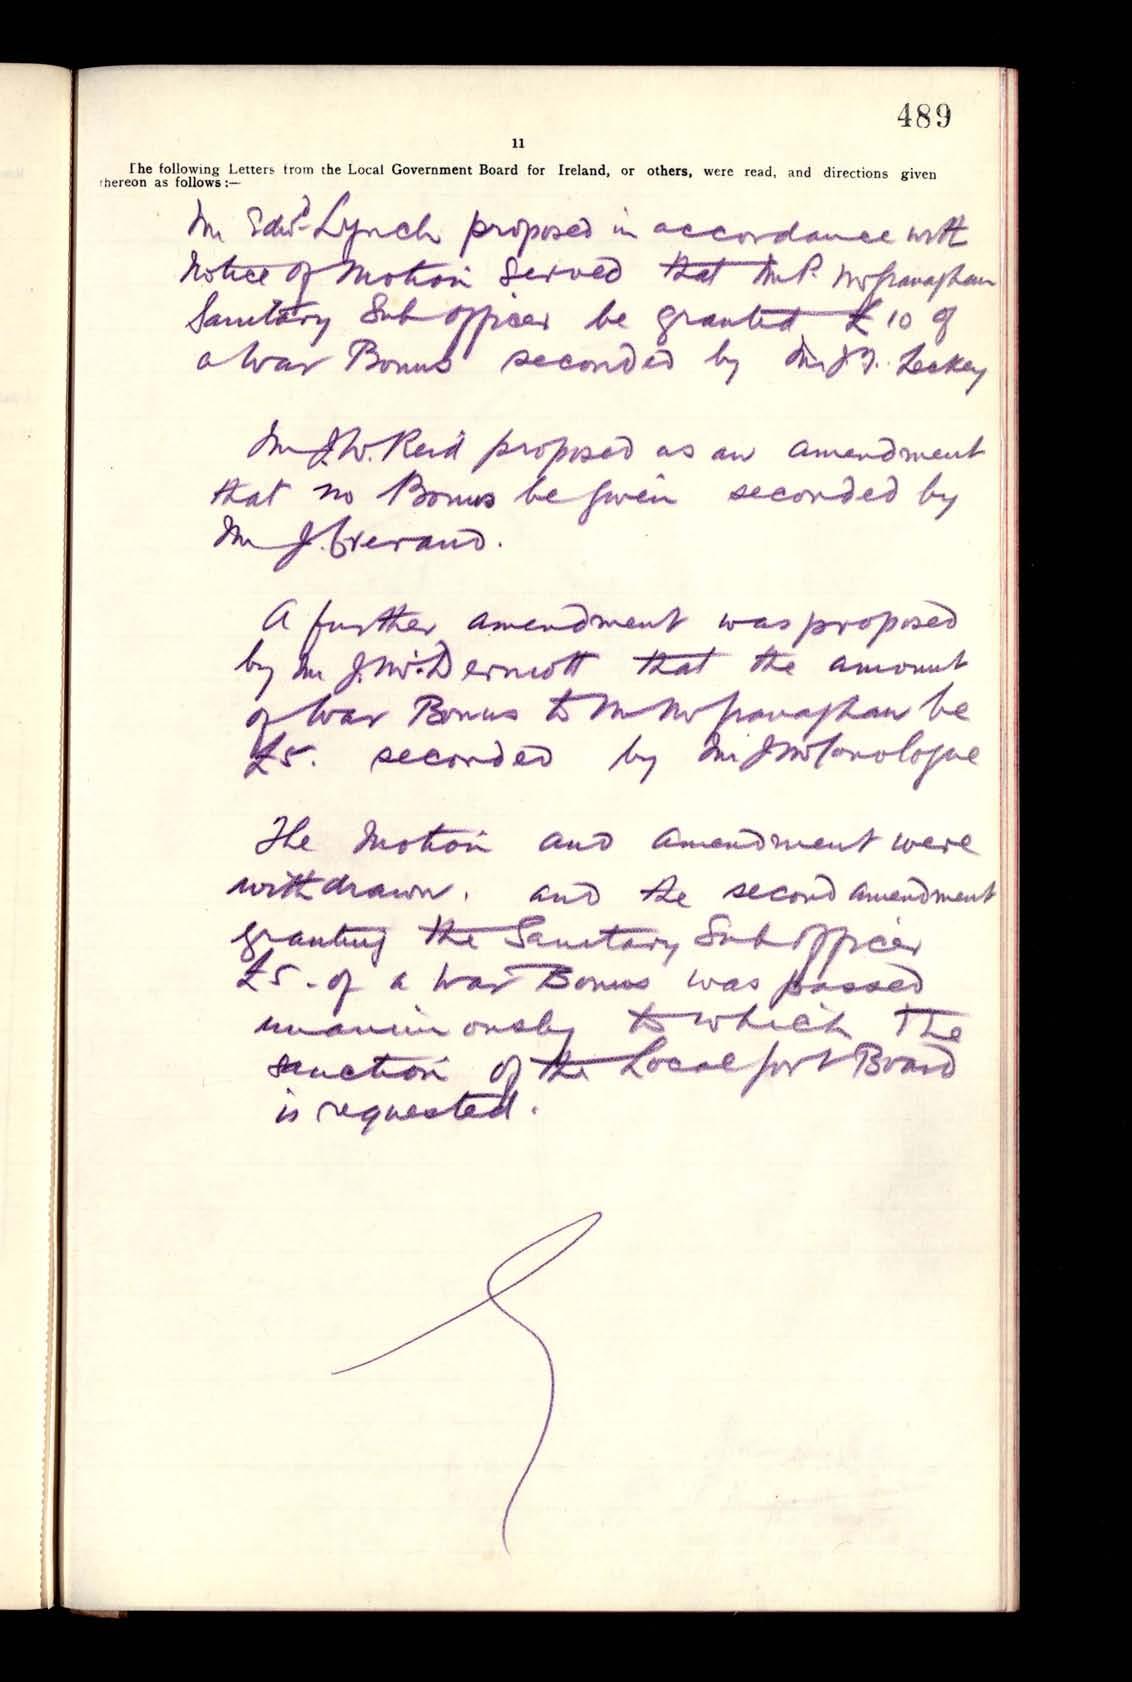 489
11
The following Letters from the Local Government Board for Ireland, or others, were read, and directions given
thereon as follows:—
Mr Edwd Lynch proposed in accordance with
Notice of Motion served that Mr P.
Sanitary Sub officer be granted £10 of
a War Bonus seconded by Mr J. Leckey
Mr J. W. Reid proposed as an amendment
that no Bonus be given seconded by
Mr J.
A further amendment was proposed
by Mr J. McDermott that the amount
of War Bonus to Mr be
£5. seconded by Mr J McConologue
The Motion and amendment were
withdrawn. and the second amendment
granting the Sanitary Sub officer
£5. of a War Bonus was passed
unanimously to which The
sanction of the Local Govt Board
is requested.